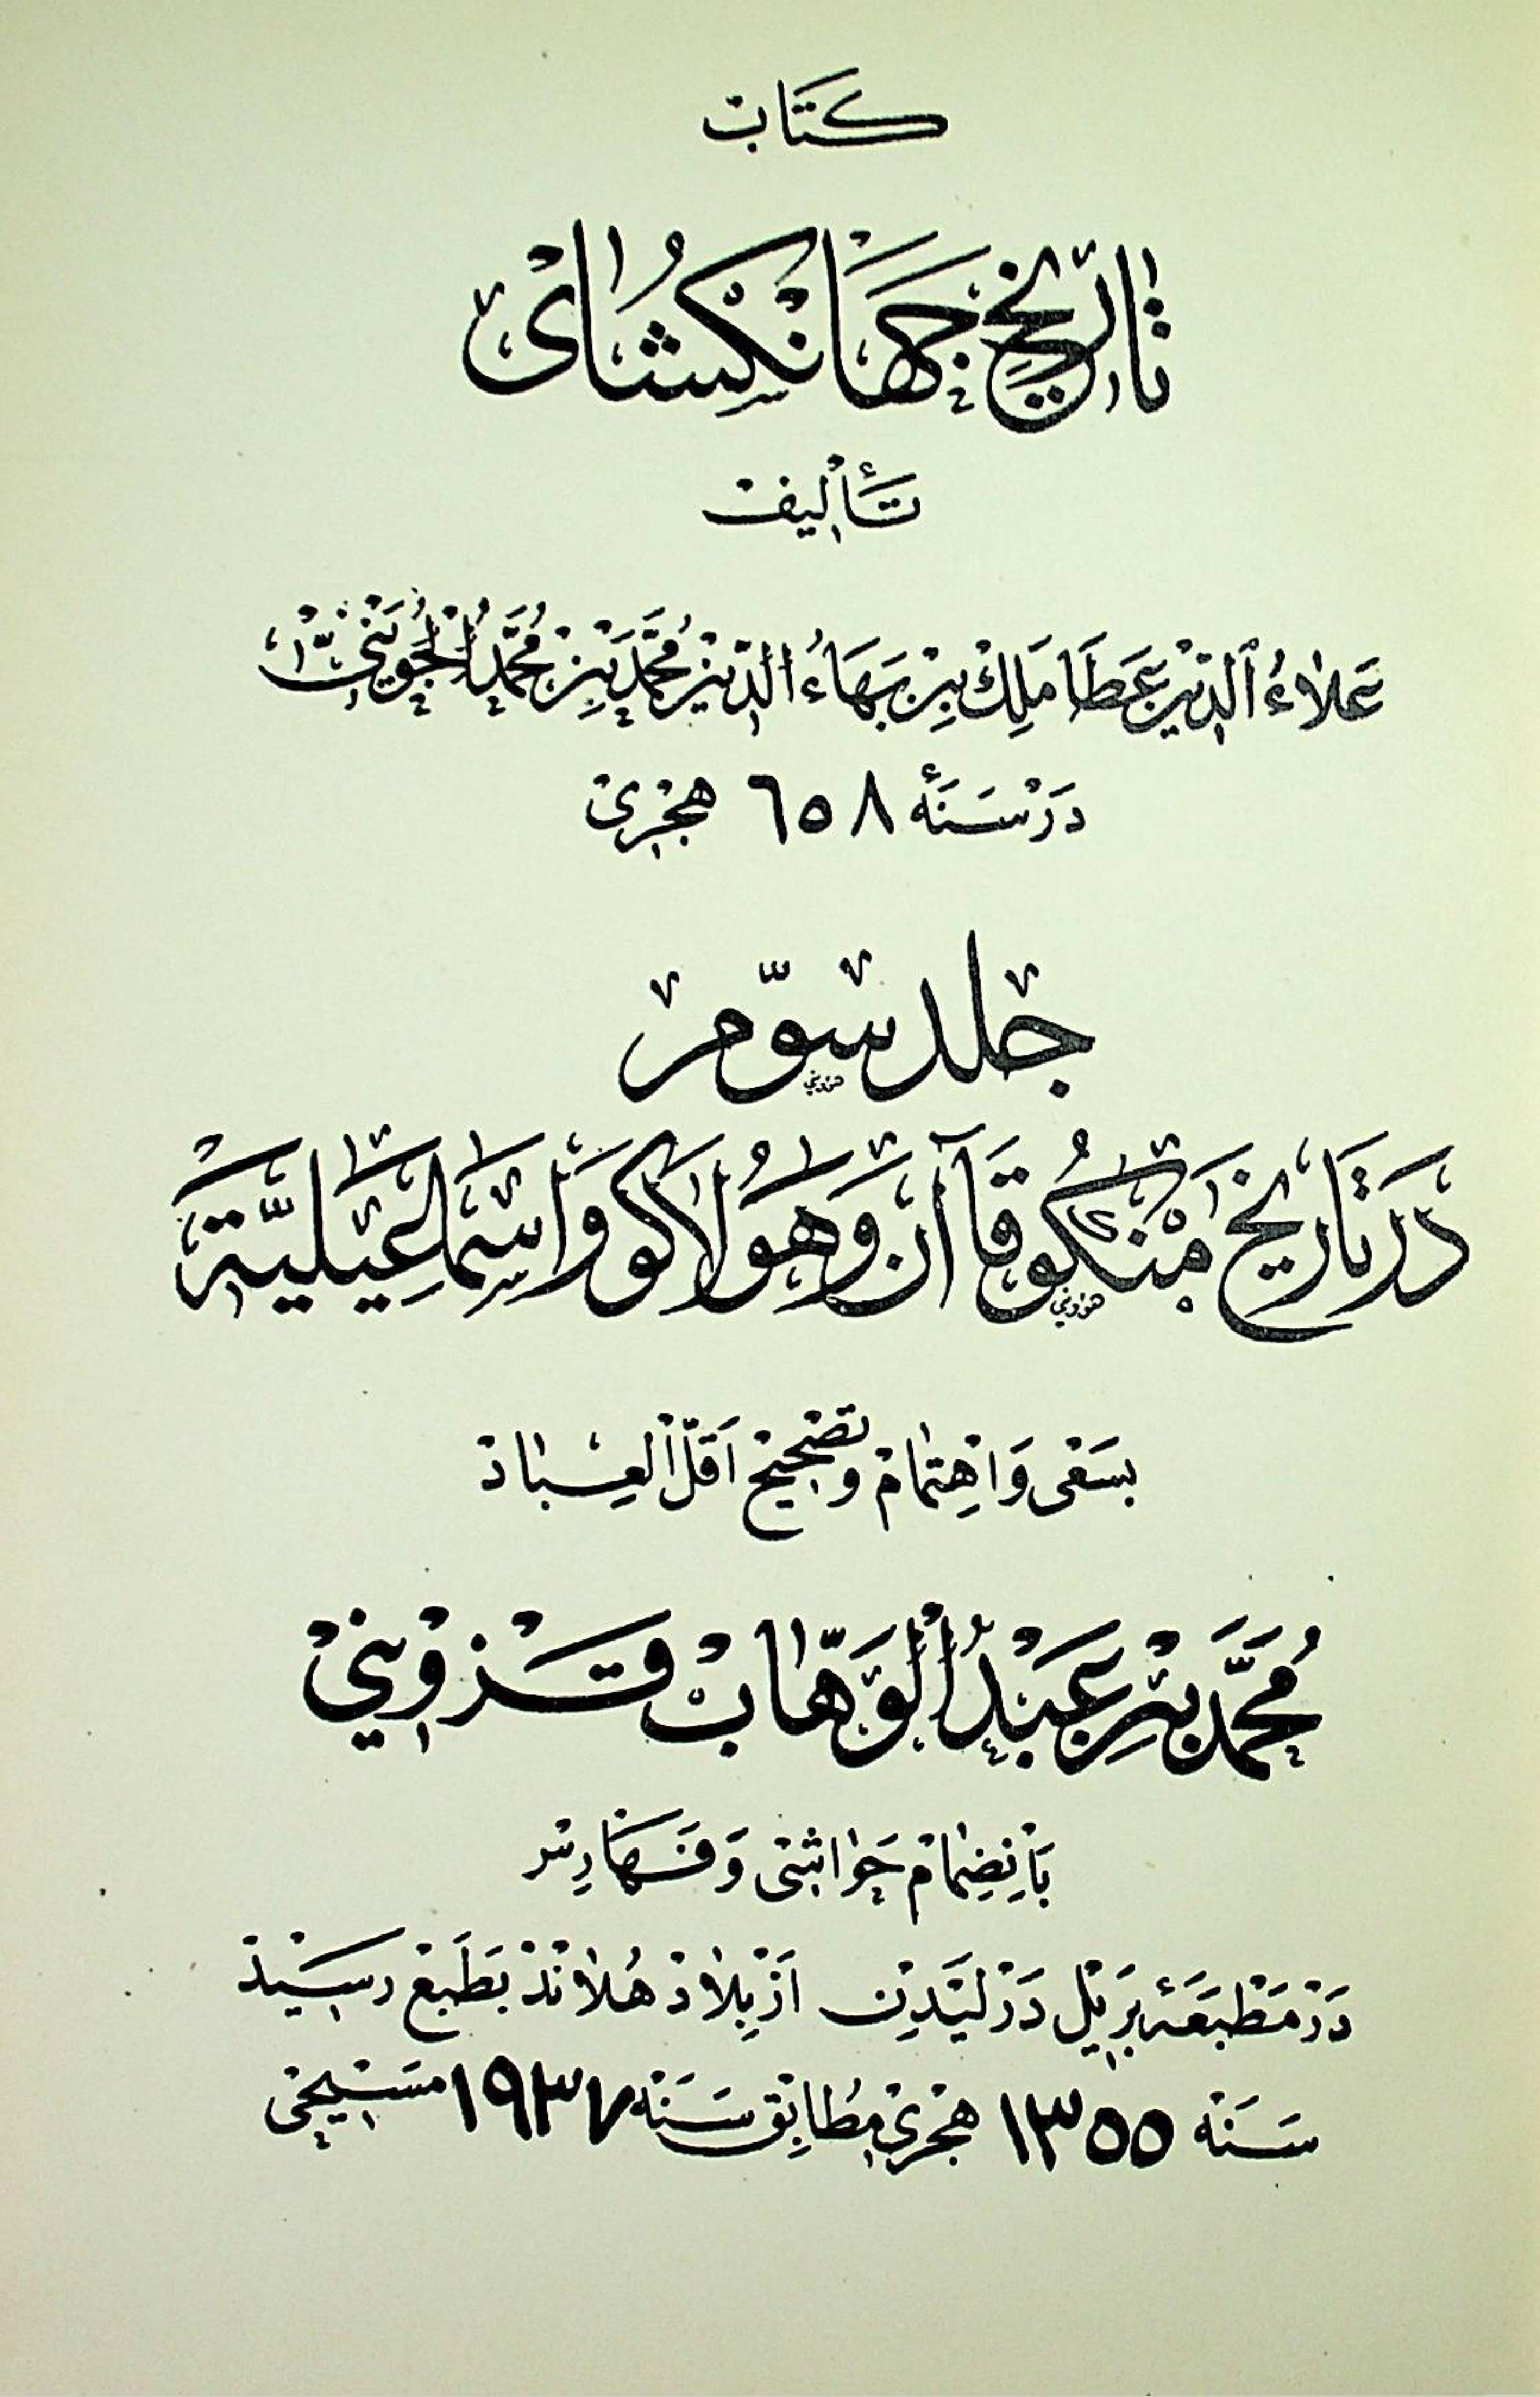 كتاب
تاريخ جهانكشاى
تأليف
علاء الدين عطا ملك بن بهاء الدين محمد بن محمد الجوينى
در سنۀ ٦٥٨ هجرى
جلد سوّم
در تاريخ منكو قاآن و هولاكو و اسماعيليّة
بسعى و اهتمام و تصحيح اقلّ العباد
محمّد بن عبد الوهّاب قزوينى
بانضمام حواشى و فهارس
در مطبعۀ بريل در ليدن از بلاد هلاند بطبع رسيد
سنه ١٣٥٥ هجرى مطابق سنه ١٩٣٧ مسيحى